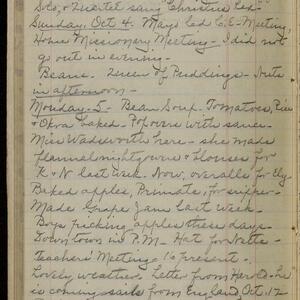 Solo, & Quartet sang "Christus Ees-
Sunday, Oct 4. Mays led C.E. Meeting,
Home Missionary Meeting - I did not
go out in evening -
Beans - Queen of Puddings - Nuts
in afternoon -
Monday - 5 - Bean Soup - Tomatoes, Rice
& Okra baked - Popovers with sauce -
Miss Wadsworth here - she made
flannel nightgowns & blouses for
K & N last week. Now, overalls for
Baked apples, for supper -
Made Grape Jam last week -
Boys picking apples these days -
Down town in P.M. Hat for Nata -
Teachers' Meeting 16 present -
Lovely weather. Letter from Har - he
is coming sails from England, Oct. 12